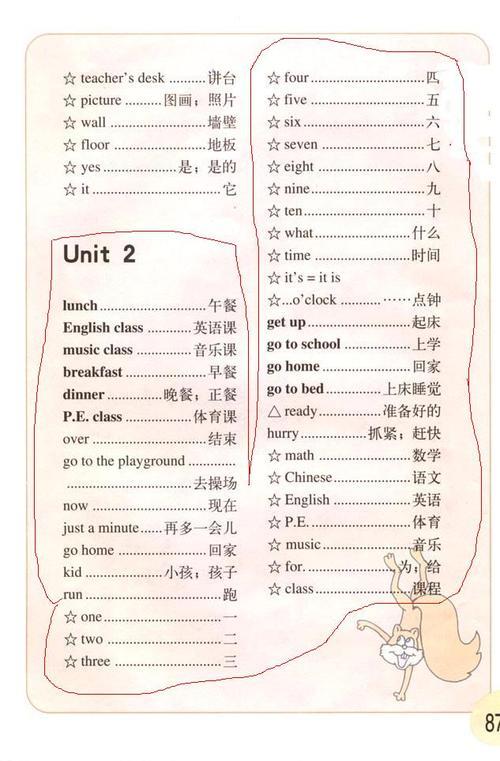 ☆ teacher's desk ..........讲台
☆ picture ..........图画；照片
☆ wall ..........................墙壁
☆ floor .........................地板
☆ yes ....................是；是的
☆ it ..................................它
Unit 2
lunch............................午餐
English class ............英语课
music class ...............音乐课
breakfast .....................早餐
dinner...............晚餐；正餐
P.E. class ..................体育课
over .............................结束
go to the playground .............
.................................去操场
now .............................现在
just a minute......再多一会儿
go home ......................回家
kid .....................小孩；孩子
run ..................................跑
☆ one................................一
☆ two ...............................二
☆ three .............................三
☆ four...............................四
☆ five ...............................五
☆ six.................................六
☆ seven .............................七
☆ eight ..............................八
☆ nine...............................九
☆ ten.................................十
☆ what..........................什么
☆ time ..........................时间
☆ it's = it is
☆...o'clock ...........……点钟
get up...........................起床
go to school ..................上学
go home........................回家
go to bed ...............上床睡觉
△ ready.................准备好的
hurry..................抓紧；赶快
☆ math .........................数学
☆ Chinese.....................语文
☆ English .....................英语
☆ P.E. ..........................体育
☆ music........................音乐
☆ for. ........................为；给
☆ class .........................课程
87